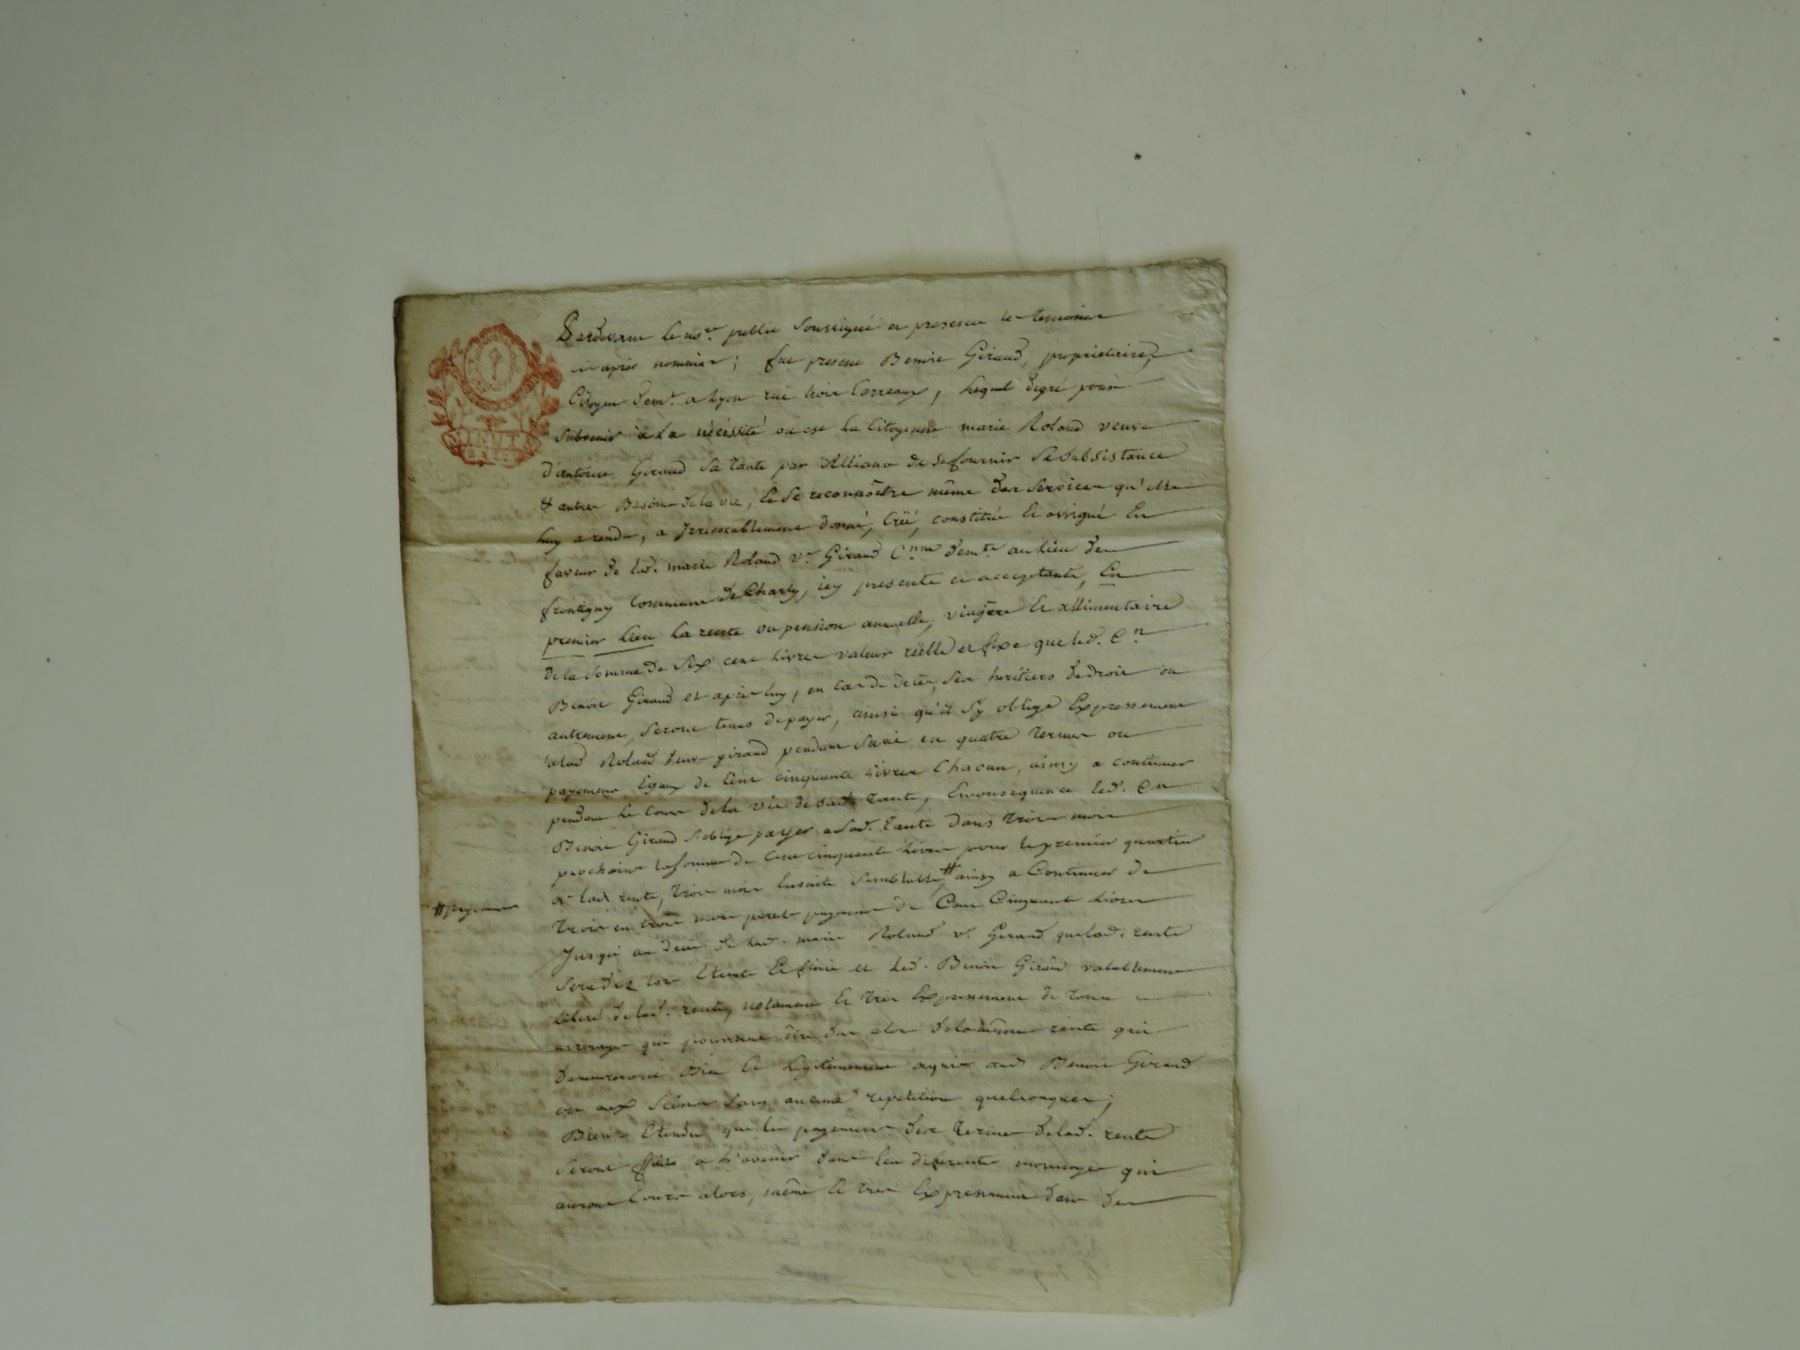 Pardevant le no.re public soussigné et presence de temoins
ci après nommés ; fut present Benoit Giraud, propriétaire,
Citoyen dem.t a Lyon rue trois Carreaux, lequel degré pour
subvenir à la nécéssité ou est la Citoyenne marie Roland veuve
d'antoine Giraud sa tante par alliance de se fournir sa subsistance
& autres Besoins de la vie, et se reconnoître même des services qu'elle
luy a rendu, a Irrevocablement donné, Créé, constitué et assigné En
faveur de lad. marie Roland v.e Giraud C.nne dem.te au lieu de
frontigny Commune de Charly, icy presente et acceptante, En
premier lieu la rente ou pension annuelle, viagère et allimentaire
de la somme de Six cent livres valeur réelle et fixe que led. C.n
Benoit Giraud et après luy, en cas de decès, ses heritiers de droit ou
autrement, seront tenus de payer, ainsi qu'il s'y oblige Expressement
a lad. Roland veuve giraud pendant sa vie en quatre termes ou
payemens Egaux de Cent cinquante livres Chacun, ainsy a continuer
pendant le cours de la vie de sad. tante, En consequence led. C.n
Benoit Giraud s'oblige payer a Sad. tante dans trois mois
prochains la somme de Cent cinquante livres pour le premier quartier
de lad. rente, trois mois Ensuite semblable # ainsy a Continuer de
# payement
trois en trois mois pareil payement de Cent Cinquante livres
Jusqu'au decès de lad. marie Roland v.e Giraud que lad. rente
sera dès lors Eteinte et finie et led. Benoit Giraud valablement
libéré de lad. rente, notamment et très Expressement de tous
arrerages qui pourroient être dus alors de la même rente qui
demeureront Bien et légitimement aquis aud. Benoit Giraud
ou aux siens sans aucune repetition quelconque ;
Bien Etendu que les payemens des termes de lad. rente
seront faits a l'avenir dans les diferentes monnoyes qui
auront Cours alors, même et très Expressement dans des